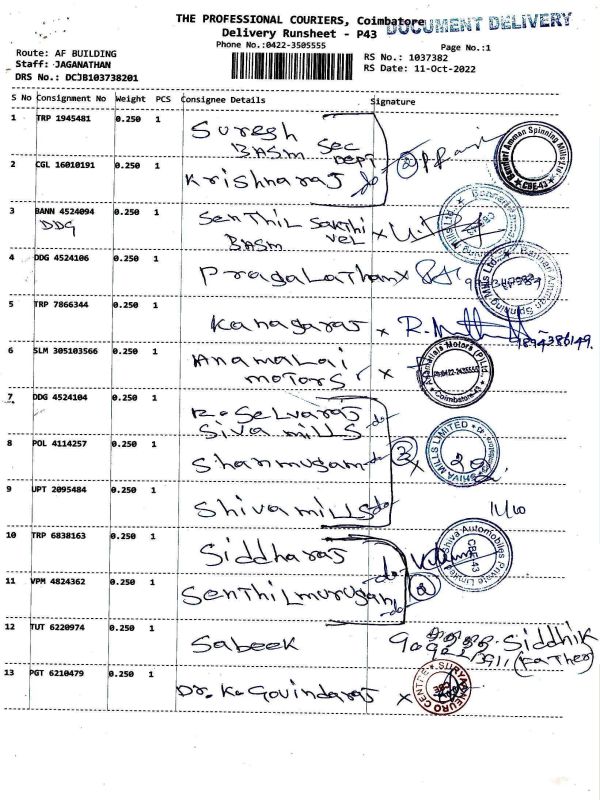 THE PROFESSIONAL COURIERS, Coimbatore
DOCUMENT DELIVERY
Delivery Runsheet - P43
Phone No.:0422-3505555
Page No.:1
Route: AF BUILDING
Staff: JAGANATHAN
DRS No.: DCJB103738201
RS No.: 1037382
RS Date: 11-Oct-2022
S No Consignment No Weight PCS Consignee Details Signature
1 TRP 1945481 0.250 1 Suresh
BASM Sec Dept
2 CGL 16010191 0.250 1 Krishnaraj do 2
Bannari Amman Spinning Mills Ltd CBE-43
3 BANN 4524094 0.250 1 Senthil Sakthi
DDG BASM vel x
4 DDG 4524106 0.250 1 Pragalathan x
Bannari Amman Spinning Mills Ltd.
5 TRP 7866344 0.250 1 Kanagaraj x
9894386149.
6 SLM 305103566 0.250 1 Anamalai
motors x
Anamallais Motors (P) Ltd. Ph:0422-2435555 Coimbatore-43
7 DDG 4524104 0.250 1 R. Selvaraj do
Siva mills
8 POL 4114257 0.250 1 Shanmugam do 3 x
SHIVA MILLS LIMITED
9 UPT 2095484 0.250 1 Shiva mills do
11/10
10 TRP 6838163 0.250 1 Siddharaj do
Shiva Automobiles Private Limited CBE-43
11 VPM 4824362 0.250 1 Senthilmurugan do 2
12 TUT 6220974 0.250 1 Sabeek
Siddhik
(Father)
13 PGT 6210479 0.250 1 Dr. K. Govindaraj x
SURYA NEURO CENTRE